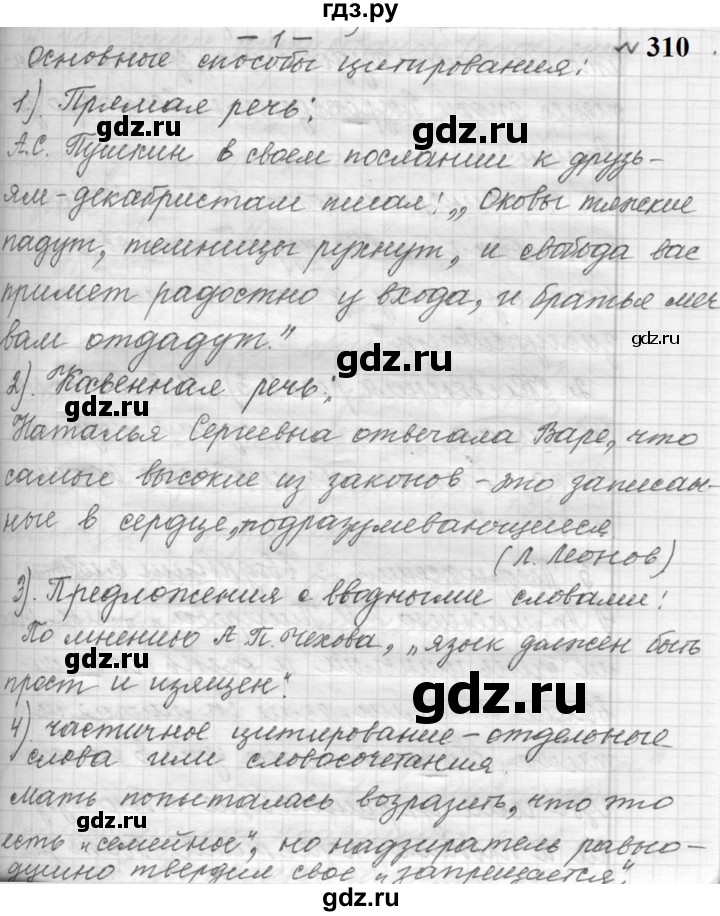 гдз.ру
- 1 -
№ 310
Основные способы цитирования:
1). Прямая речь:
gdz.ru gdz.ru
А.С. Пушкин в своем послании к друзь-
ям-декабристам писал: „Оковы тяжкие
падут, темницы рухнут, и свобода вас
примет радостно у входа, и братья меч
вам отдадут."
gdz.ru gdz.ru
2). Косвенная речь:
gdz.ru
Наталья Сергеевна отвечала Варе, что
самые высокие из законов - это записан-
ные в сердце, подразумевающиеся
(Л. Леонов)
gdz.ru
3). Предложения с вводными словами:
По мнению А.П. Чехова, „язык должен быть
прост и изящен".
gdz.ru
gdz.ru
4) частичное цитирование - отдельные
слова или словосочетания.
Мать попыталась возразить, что это
есть „семейное", но надзиратель равно-
душно твердил свое „запрещается".
gdz.ru gdz.ru
gdz.ru